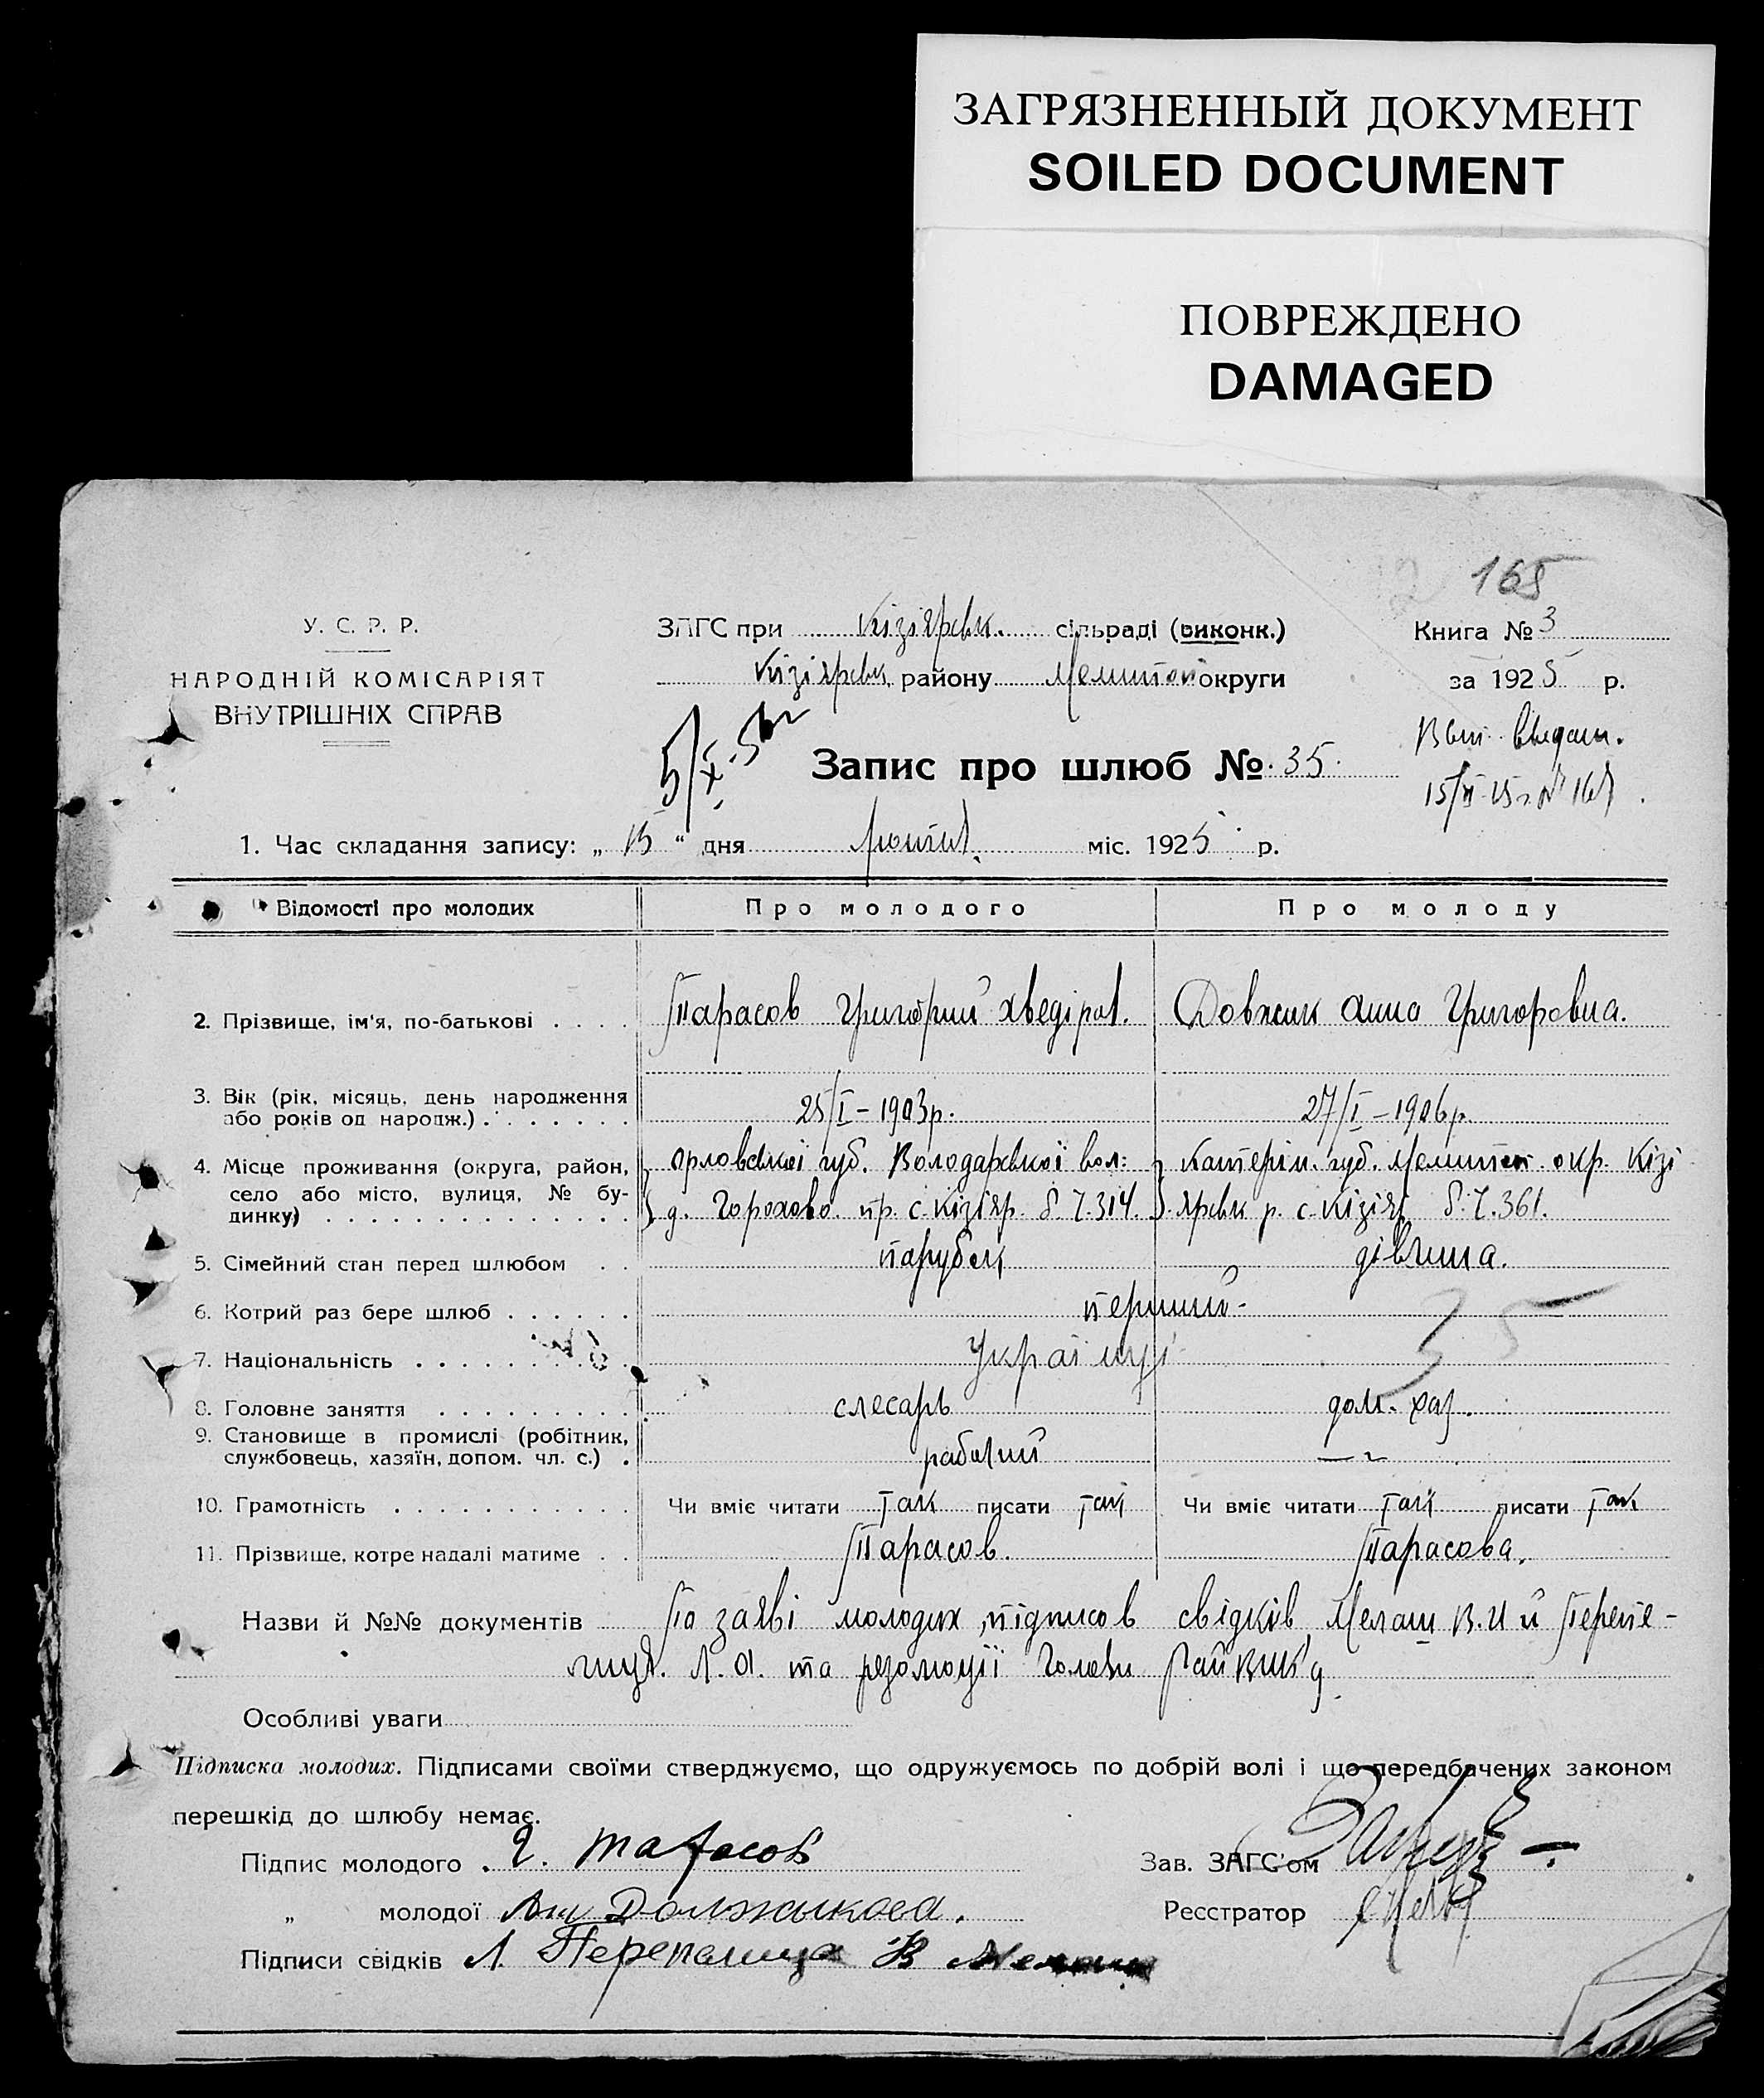 ЗАГРЯЗНЕННЫЙ ДОКУМЕНТ
SOILED DOCUMENT
ПОВРЕЖДЕНО
DAMAGED
165
У. С. Р. Р.
НАРОДНІЙ КОМІСАРІЯТ
ВНУТРІШНІХ СПРАВ
ЗАГС при Кізіярськ. сільраді (виконк.)
Кізіярськ. району Мелитоп округи
Книга № 3
за 1925 р.
Запис про шлюб № 35.
1. Час складання запису: „ 15 “ дня міс. 1925 р.
Відомості про молодих Про молодого Про молоду
2. Прізвище, ім'я, по-батькові . . . . Тарасов Григорий Хведіров. Довжик Анна Григоровна.
3. Вік (рік, місяць, день народження 25/I – 1903р. 27/I – 1906р.
або років од народж.) . . . . . . .
4. Місце проживання (округа, район, Орловської губ. Володарської вол: Катерін. губ. Мелитоп. окр. Кізі
село або місто, вулиця, № бу- д. Горохово. пр. с. Кізіяр. б. Ч. 314. ярськ р. с. Кізіяр б. Ч. 361.
динку) . . . . . . . . . . . . . .
5. Сімейний стан перед шлюбом . . парубок дівчина.
6. Котрий раз бере шлюб . . . . . . перший-
7. Національність . . . . . . . . . . Українці
35
8. Головне заняття . . . . . . . . . слесарь дом. хаз.
9. Становище в промислі (робітник, рабочий
службовець, хазяїн, допом. чл. с.) .
10. Грамотність . . . . . . . . . . . Чи вміє читати так писати так Чи вміє читати так писати так
11. Прізвище, котре надалі матиме . . Тарасов. Тарасова.
Назви й №№ документів По заяві молодих, підписов свідків Мелаш В. И й Перепе-
лиця. Л. О. та резолюції Голови РайВик'а
Особливі уваги
Підписка молодих. Підписами своїми стверджуємо, що одружуємось по добрій волі і що передбачених законом
перешкід до шлюбу немає.
Підпис молодого . Г. Тарасов Зав. ЗАГС'ом
„ молодої Ан Должыкова. Реєстратор
Підписи свідків Л. Перепелица В Мелаш